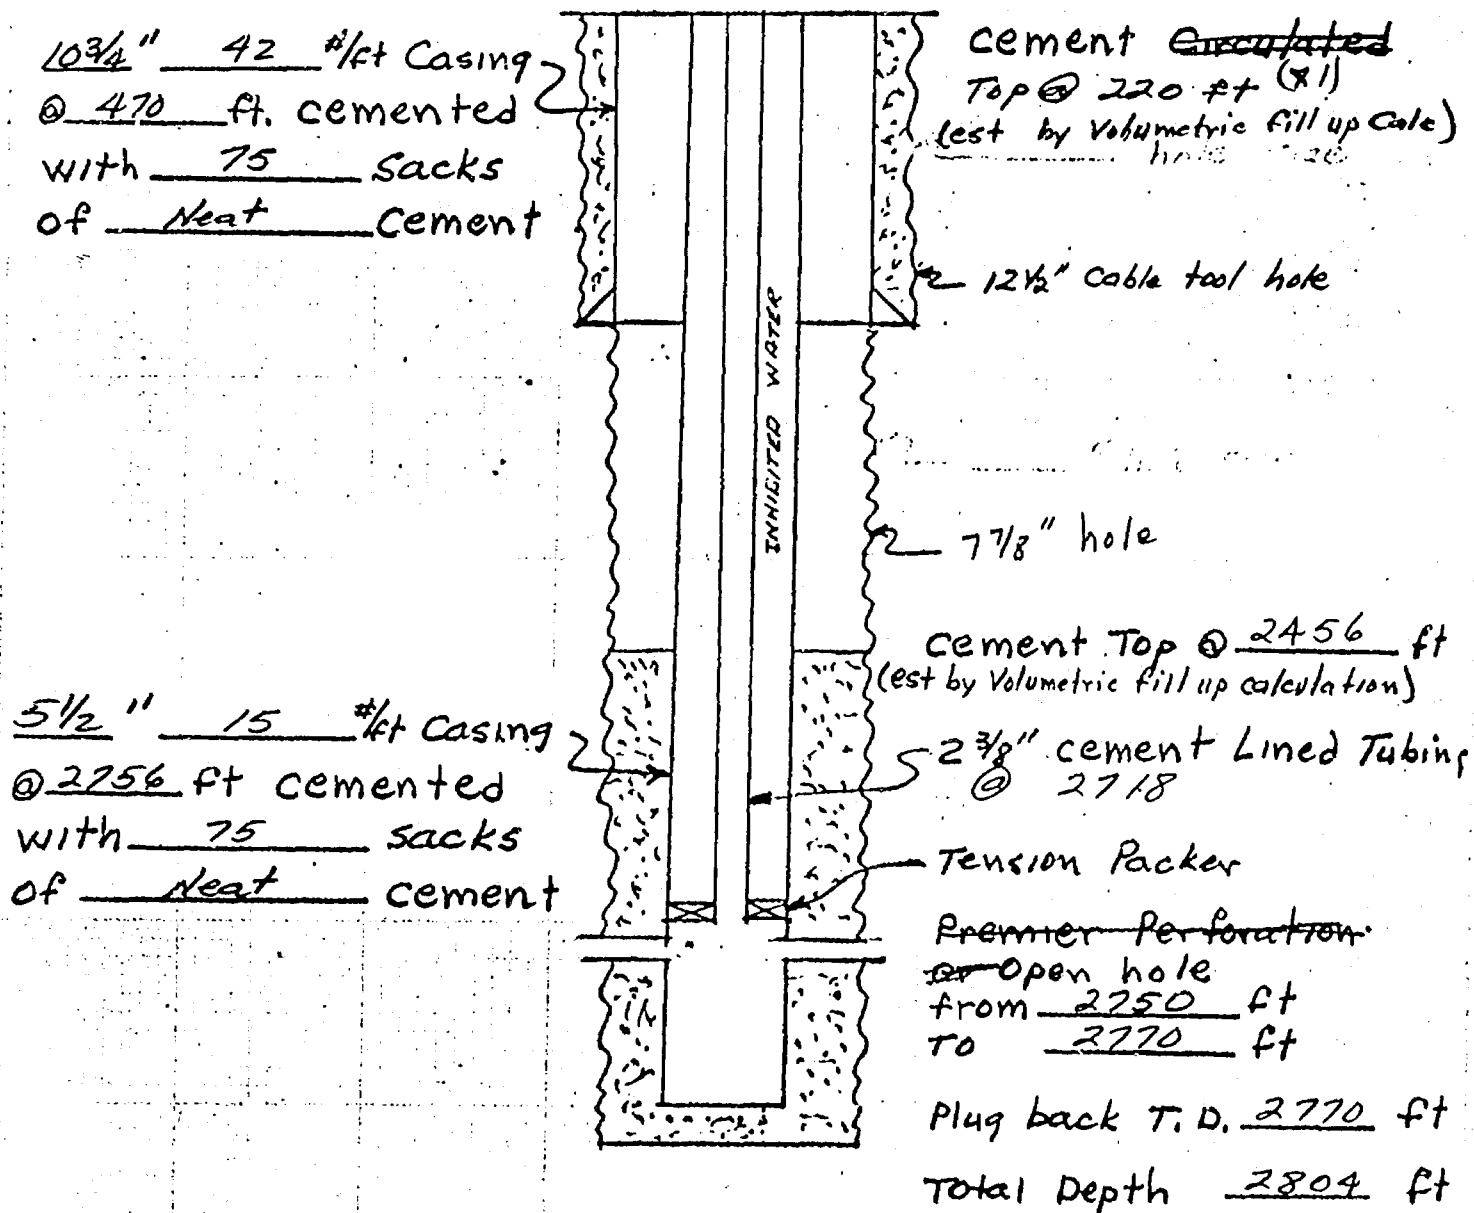 10 3/4" 42 #/ft Casing
@ 470 ft. cemented
with 75 sacks
of Neat Cement
cement Circulated
Top @ 220 ft (*1)
(est by Volumetric fill up Calc)
12 1/2" Cable tool hole
INHIBITED WATER
7 7/8" hole
cement Top @ 2456 ft
(est by Volumetric fill up calculation)
5 1/2" 15 #/ft Casing
@ 2756 ft cemented
with 75 sacks
of Neat cement
2 3/8" cement Lined Tubing
@ 2718
Tension Packer
Premier Perforation
or Open hole
from 2750 ft
TO 2770 ft
Plug back T.D. 2770 ft
Total Depth 2804 ft